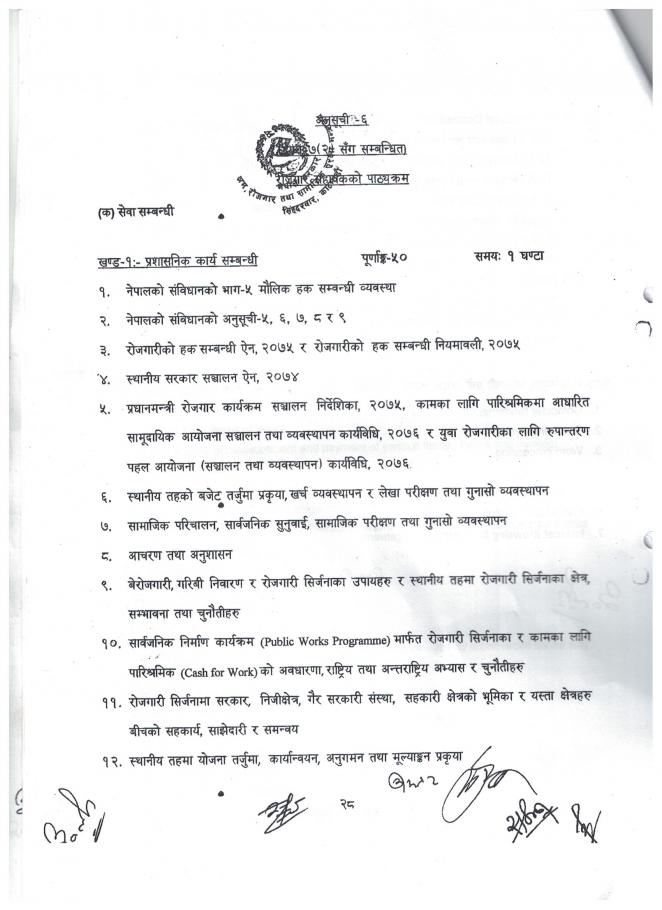 अनुसूची -६
७(२) सँग सम्बन्धित)
रोजगार सहायकको पाठ्यक्रम
श्रम, रोजगार तथा सामाजिक
सिंहदरबार,
(क) सेवा सम्बन्धी
खण्ड-१:- प्रशासनिक कार्य सम्बन्धी पूर्णाङ्क-५० समयः १ घण्टा
१. नेपालको संविधानको भाग-५ मौलिक हक सम्बन्धी व्यवस्था
२. नेपालको संविधानको अनुसूची-५, ६, ७, ८ र ९
३. रोजगारीको हक सम्बन्धी ऐन, २०७५ र रोजगारीको हक सम्बन्धी नियमावली, २०७५
४. स्थानीय सरकार सञ्चालन ऐन, २०७४
५. प्रधानमन्त्री रोजगार कार्यक्रम सञ्चालन निर्देशिका, २०७५, कामका लागि पारिश्रमिकमा आधारित
सामूदायिक आयोजना सञ्चालन तथा व्यवस्थापन कार्यविधि, २०७६ र युवा रोजगारीका लागि रुपान्तरण
पहल आयोजना (सञ्चालन तथा व्यवस्थापन) कार्यविधि, २०७६
६. स्थानीय तहको बजेट तर्जुमा प्रकृया, खर्च व्यवस्थापन र लेखा परीक्षण तथा गुनासो व्यवस्थापन
७. सामाजिक परिचालन, सार्वजनिक सुनुवाई, सामाजिक परीक्षण तथा गुनासो व्यवस्थापन
८. आचरण तथा अनुशासन
९. बेरोजगारी, गरिबी निवारण र रोजगारी सिर्जनाका उपायहरु र स्थानीय तहमा रोजगारी सिर्जनाका क्षेत्र,
सम्भावना तथा चुनौतीहरु
१०. सार्वजनिक निर्माण कार्यक्रम (Public Works Programme) मार्फत रोजगारी सिर्जनाका र कामका लागि
पारिश्रमिक (Cash for Work) को अवधारणा, राष्ट्रिय तथा अन्तराष्ट्रिय अभ्यास र चुनौतीहरु
११. रोजगारी सिर्जनामा सरकार, निजीक्षेत्र, गैर सरकारी संस्था, सहकारी क्षेत्रको भूमिका र यस्ता क्षेत्रहरु
बीचको सहकार्य, साझेदारी र समन्वय
१२. स्थानीय तहमा योजना तर्जुमा, कार्यान्वयन, अनुगमन तथा मूल्याङ्कन प्रकृया
२८